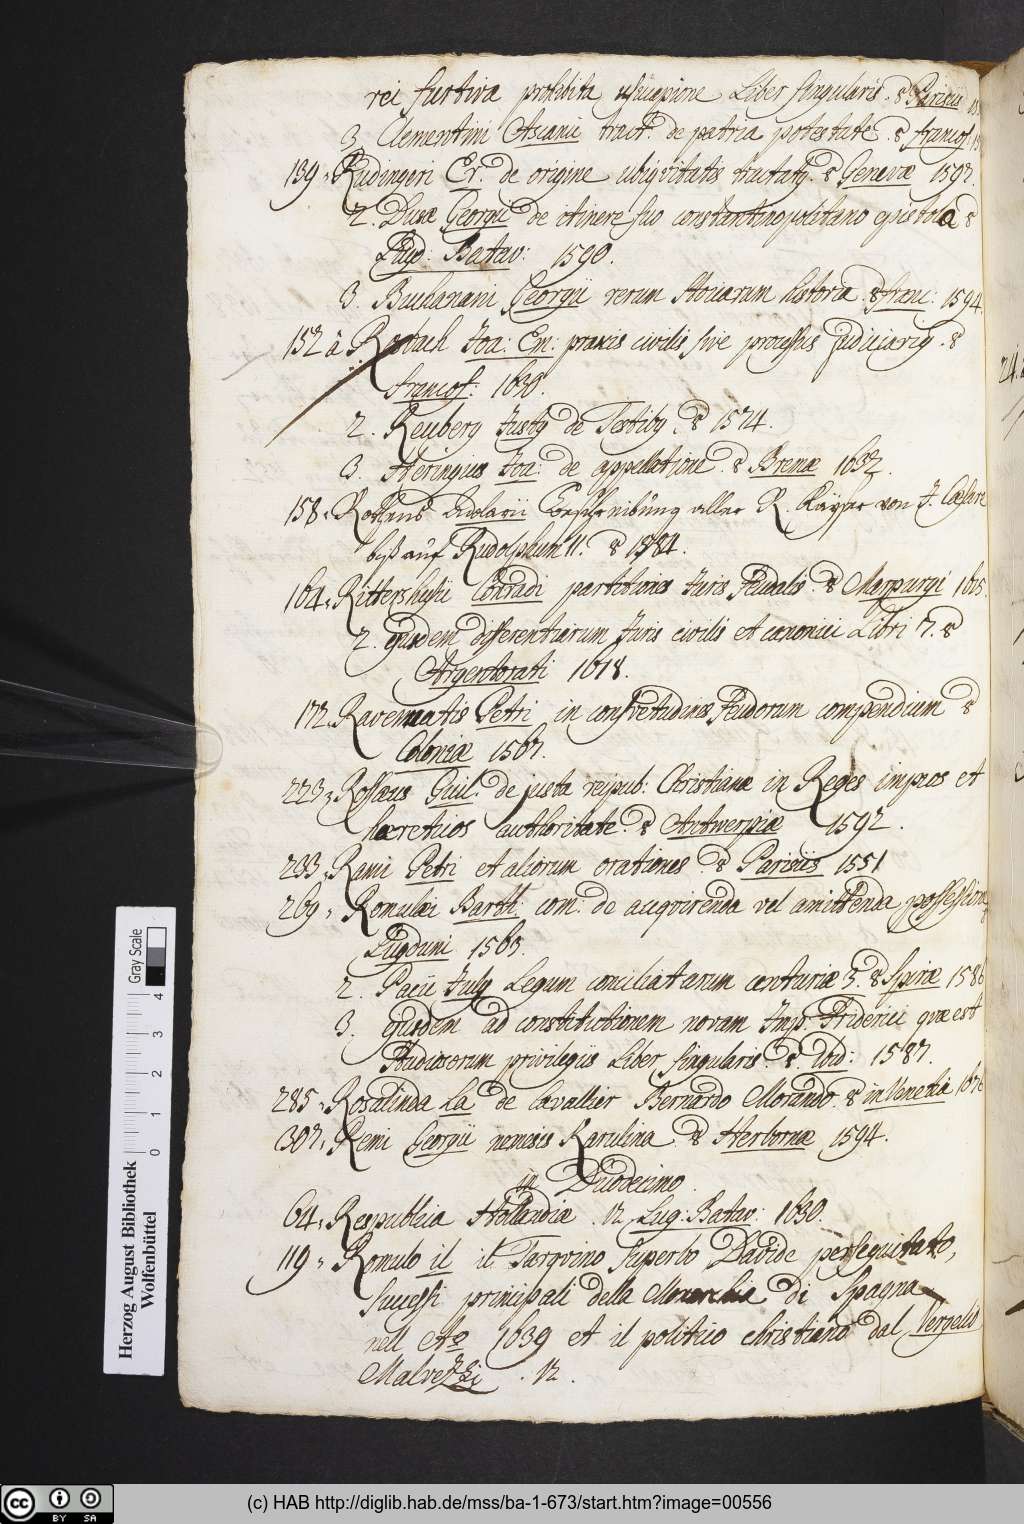 rei furtivæ prohibita usucapione Liber singularis. 8 Parisiis
3. Clementini Ascanii tract. de patria potestate. 8 francof.
139. Rudingeri Er. de origine ubiqvitatis tractatg. 8 Genevæ 1597.
2. Dusæ Georgii de itinere suo constantinopolitano epistola 8
Lugd: Batav: 1590.
3. Buchanani Georgii rerum Scoticarum historia. 8 franc: 1594.
152 a Rosbach Joa: Em: praxis civilis sive processus judiciarig. 8
francof: 1630.
2. Reuberg Justg de Testibg. 8 1574.
3. Heringius Joa: de appellatione. 8 Bremæ 1632.
158. Rolens Beschreibung aller R. Käyser von J. Cæsare
biß auf Rudolphum II. 8 1584.
164. Rittershusii Conradi partitiones Juris Feudalis. 8 Marpurgi
2. ejusdem differentiarum Juris civilis et canonici Libri 7. 8
Argentorati 1618.
172. Ravennatis Petri in consvetudines Feudorum compendium 8
Coloniæ 1567.
223. Rossæus Guil. de justa reipub: Christianæ in Reges impios et
hæreticos authoritate. 8 Antwerpiæ 1592.
233. Rami Petri et aliorum orationes. 8 Parisiis 1551
269. Romulæi Barth: com: de acqvirenda vel amittenda possessione
Lugduni 1563.
2. Pacii Julg Legum conciliatarum centuriæ 3. 8 Spiræ 1586
3. ejusdem ad constitutionem novam Imp. Friderici qvæ est
Studiosorum privilegiis Liber singularis. 8. Ibid: 1587.
285. Rosalinda La de Cavallier Bernardo Morando. 8 in Venetia
307. Remi Georgii nemesis Karulina. 8 Herbornæ 1594.
in Duodecimo.
64. Respublica Hollandiæ. 12 Lug: Batav: 1630.
119. Romulo il il Tarqvino Superbo Davide persequitato,
Successi principali della Monarchia di Spagna
nell Ao 1639 et il politico christiano dal Vergelio
Malvezzi. 12.
Herzog August Bibliothek
Wolfenbüttel
0 1 2 3 4
Gray Scale
(c) HAB http://diglib.hab.de/mss/ba-1-673/start.htm?image=00556
cc BY SA